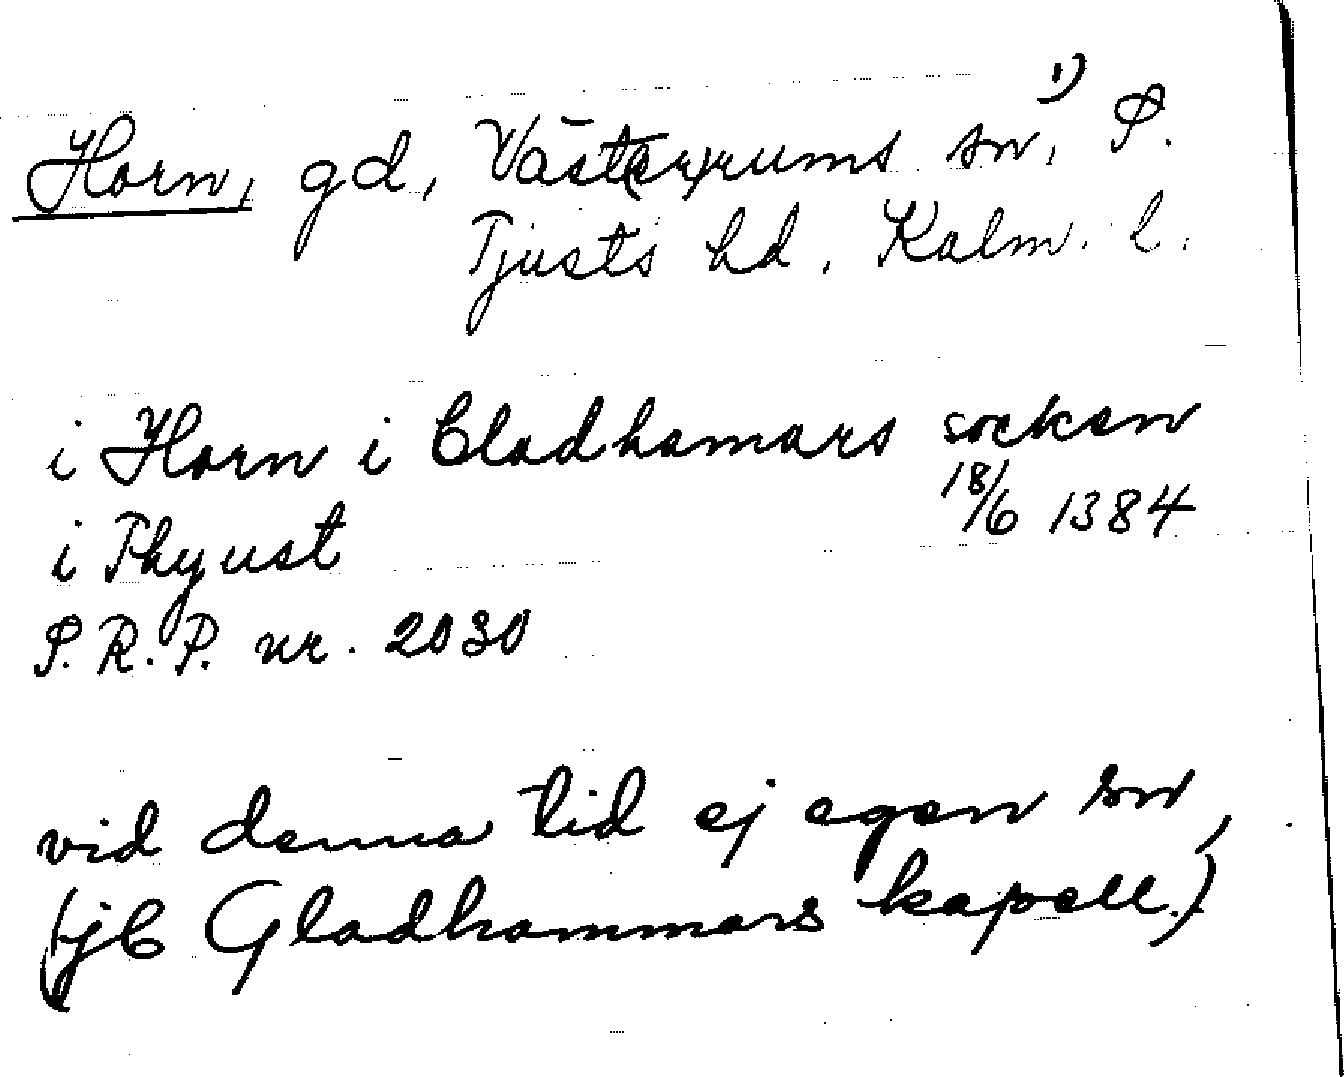 Horn, gd, Väst(er)rums sn, ¹⁾ S.
Tjusts hd, Kalm. l.
i Horn i Gladhamars socken
i Thyust 18/6 1384
S.R.P. nr. 2030
vid denna tid ej egen sn,
(jfr Gladhammars kapell.)